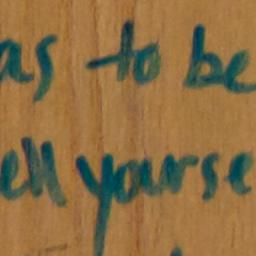 as to be
ell yourse